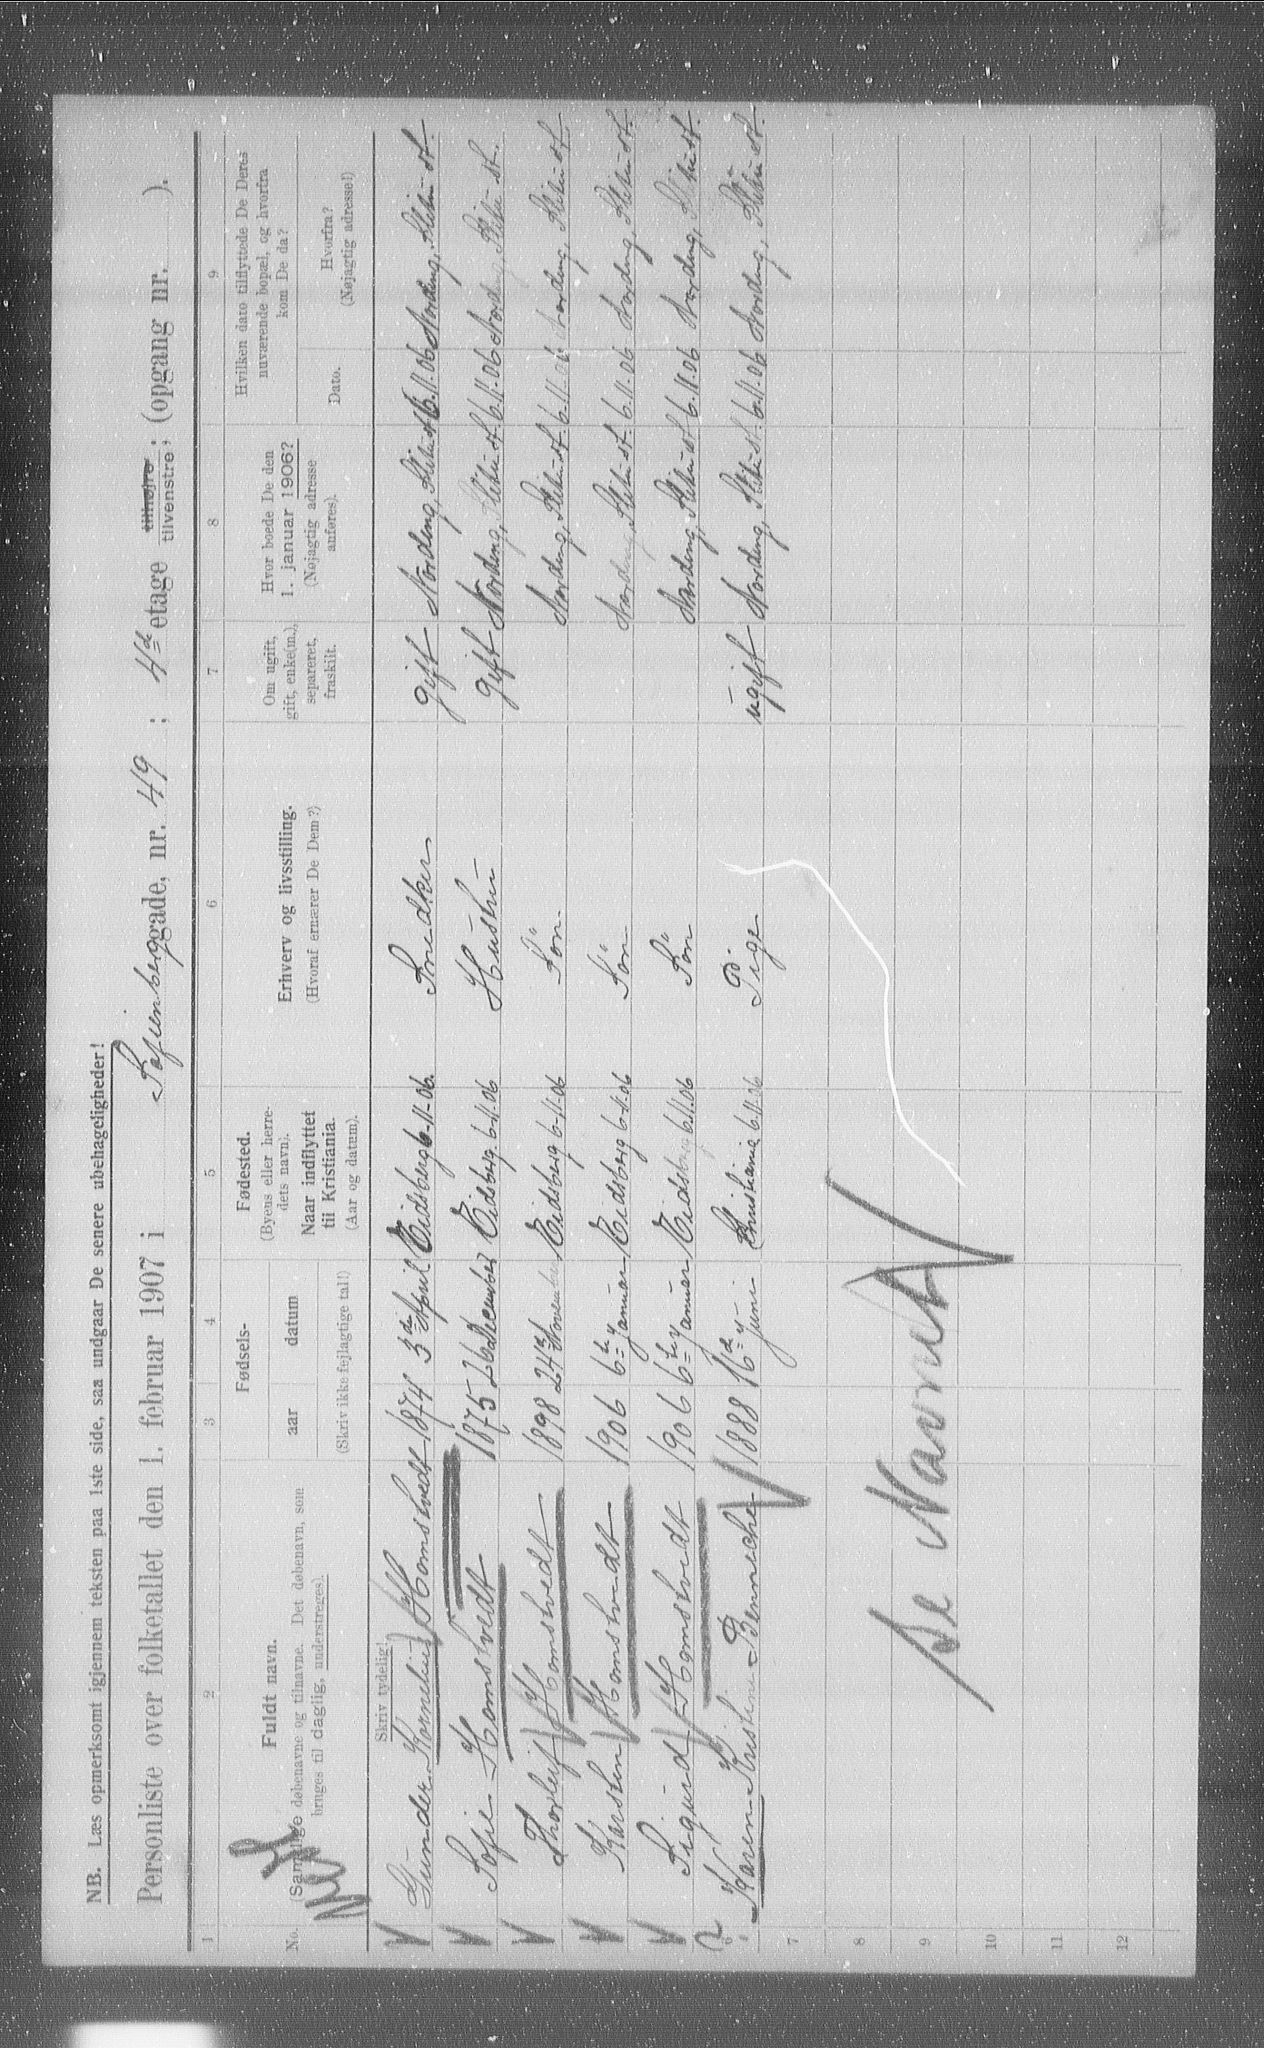 NB. Læs opmerksomt igjennem teksten paa 1ste side, saa undgaar De senere ubehageligheder!
Personliste over folketallet den 1. februar 1907 i Sofienberggade, nr. 49 ; 4de etage tilhøjre tilvenstre; (opgang nr. ).
1 2 3 4 5 6 7 8 9
No. Fuldt navn. (Samtlige døbenavne og tilnavne. Det døbenavn, som bruges til daglig, understreges).
Fødsels- aar datum (Skriv ikke fejlagtige tal!)
Fødested. (Byens eller herredets navn). Naar indflyttet til Kristiania. (Aar og datum).
Erhverv og livsstilling. (Hvoraf ernærer De Dem?)
Om ugift, gift, enke(m.), separeret, fraskilt.
Hvor boede De den 1. januar 1906? (Nøjagtig adresse anføres).
Hvilken dato tilflyttede De Deres nuværende bopæl, og hvorfra kom De da?
Dato. Hvorfra? (Nøjagtig adresse!)
Skriv tydelig!
Gunder Kornelius Homstvedt 1874 3de April Eidsberg 6-11-06. Snedker gift Nording, Slitu st. 6.11.06 Nording, Slitu st.
Sofie Homstvedt 1875 26 December Eidsberg 6-11-06 Hustru gift Nording, Slitu st. 6.11.06 Nording, Slitu st.
Thorleif Homstvedt 1898 24de November Eidsberg 6-11-06 Søn Nording, Slitu st. 6.11.06 Nording, Slitu st.
Karsten Homstvedt 1906 6te Januar Eidsberg 6-11-06 Søn Nording, Slitu st. 6.11.06 Nording, Slitu st.
Sigurd Homstvedt 1906 6te Januar Eidsberg 6.11.06 Søn Nording, Slitu st. 6.11.06 Nording, Slitu st.
6 Karen Kristine Bennecke 1888 16de Juni Kristiania 6-11-06 Pige ugift Nording, Slitu st. 6.11.06 Nording, Slitu st.
7
8
9
10
11
12
Se Navnet